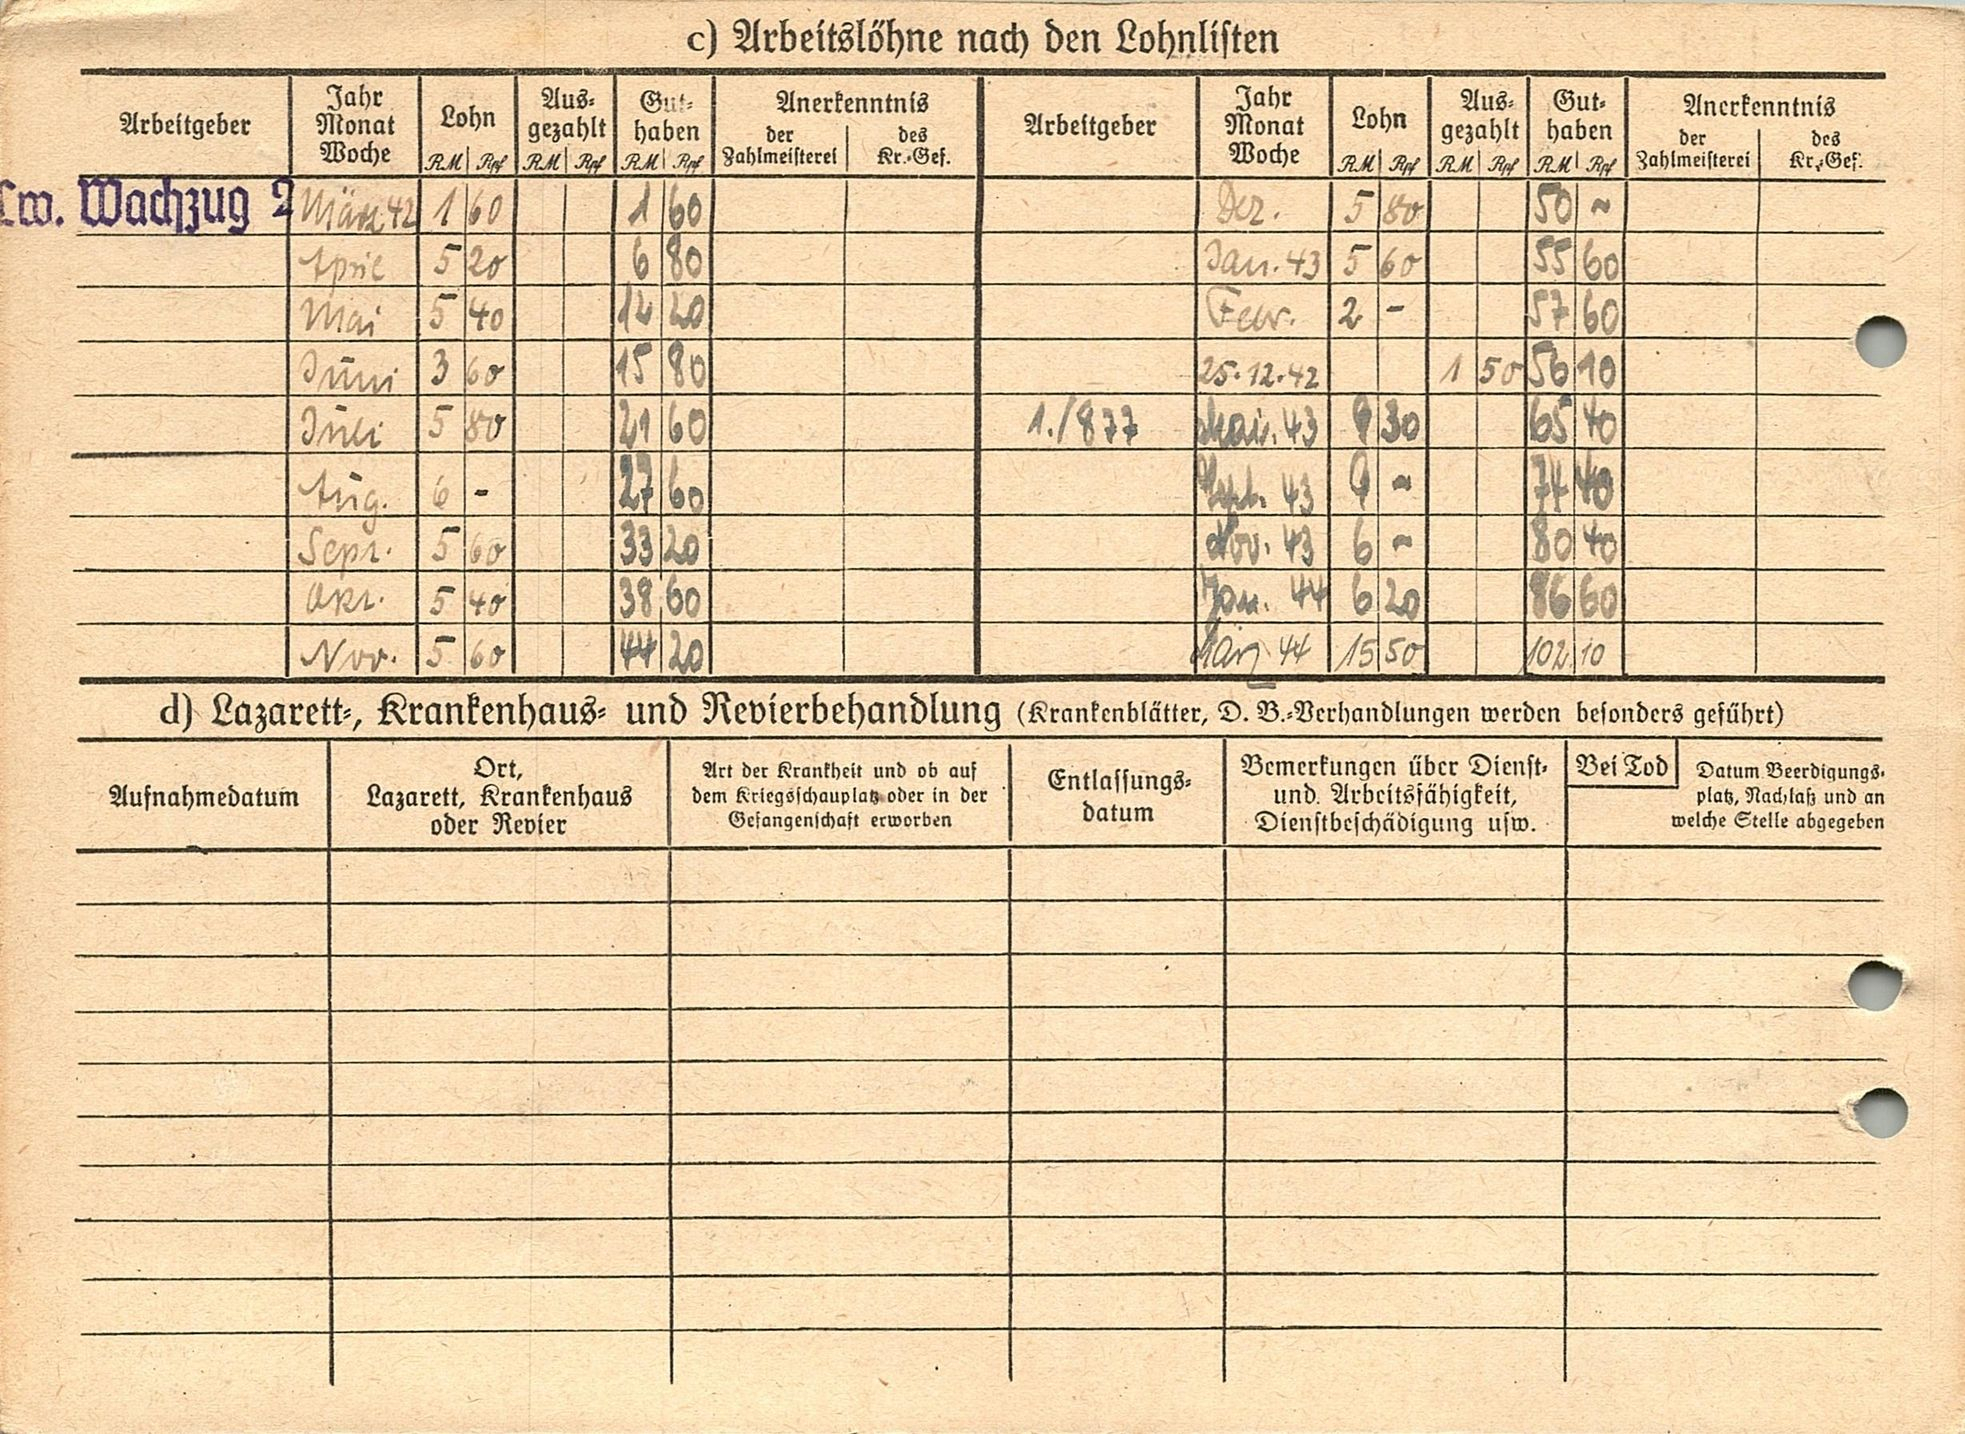 c) Arbeitslöhne nach den Lohnlisten
Arbeitgeber Jahr Monat Woche Lohn RM Rpf Aus-gezahlt RM Rpf Gut-haben RM Rpf Anerkenntnis der Zahlmeisterei des Kr.-Gef. Arbeitgeber Jahr Monat Woche Lohn RM Rpf Aus-gezahlt RM Rpf Gut-haben RM Rpf Anerkenntnis der Zahlmeisterei des Kr.-Gef.
Lw. Wachzug 2 März 42 1 60 1 60 Dez. 5 80 50 ~
April 5 20 6 80 Jan. 43 5 60 55 60
Mai 5 40 12 20 Febr. 2 - 57 60
Juni 3 60 15 80 25.12.42 1 50 56 10
Juli 5 80 21 60 1./877 43 9 30 65 40
Aug. 6 - 27 60 43 9 ~ 74 40
Sept. 5 60 33 20 Nov. 43 6 ~ 80 40
Okt. 5 40 38 60 Jan. 44 6 20 86 60
Nov. 5 60 44 20 März 44 15 50 102 10
d) Lazarett-, Krankenhaus- und Revierbehandlung (Krankenblätter, D. B.-Verhandlungen werden besonders geführt)
Aufnahmedatum
Ort,
Lazarett, Krankenhaus
oder Revier
Art der Krankheit und ob auf
dem Kriegsschauplatz oder in der
Gefangenschaft erworben
Entlassungs-
datum
Bemerkungen über Dienst-
und Arbeitsfähigkeit,
Dienstbeschädigung usw.
Bei Tod
Datum Beerdigungs-
platz, Nachlaß und an
welche Stelle abgegeben